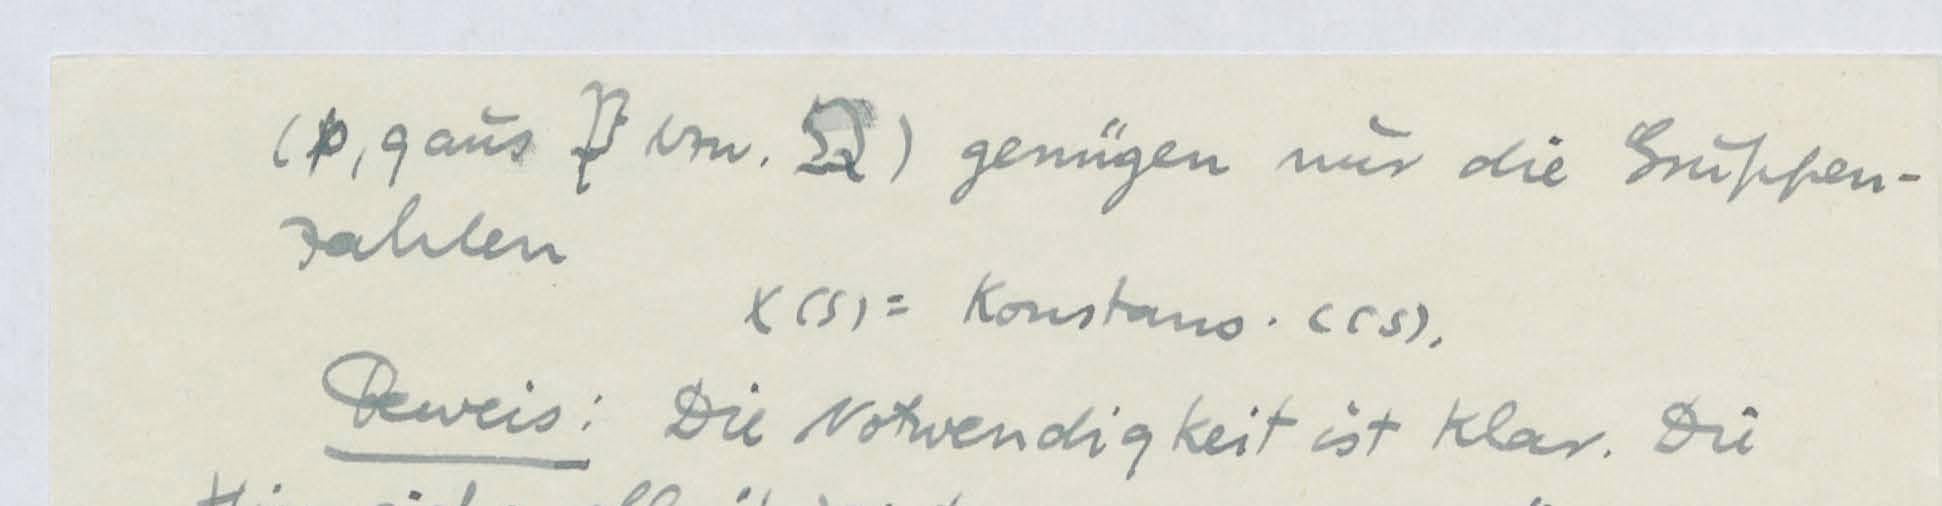 (p, q aus 𝔓 bzw. 𝔔) genügen nur die Gruppen-
zahlen
x(s) = Konstans · c(s).
Beweis: Die Notwendigkeit ist klar. Die